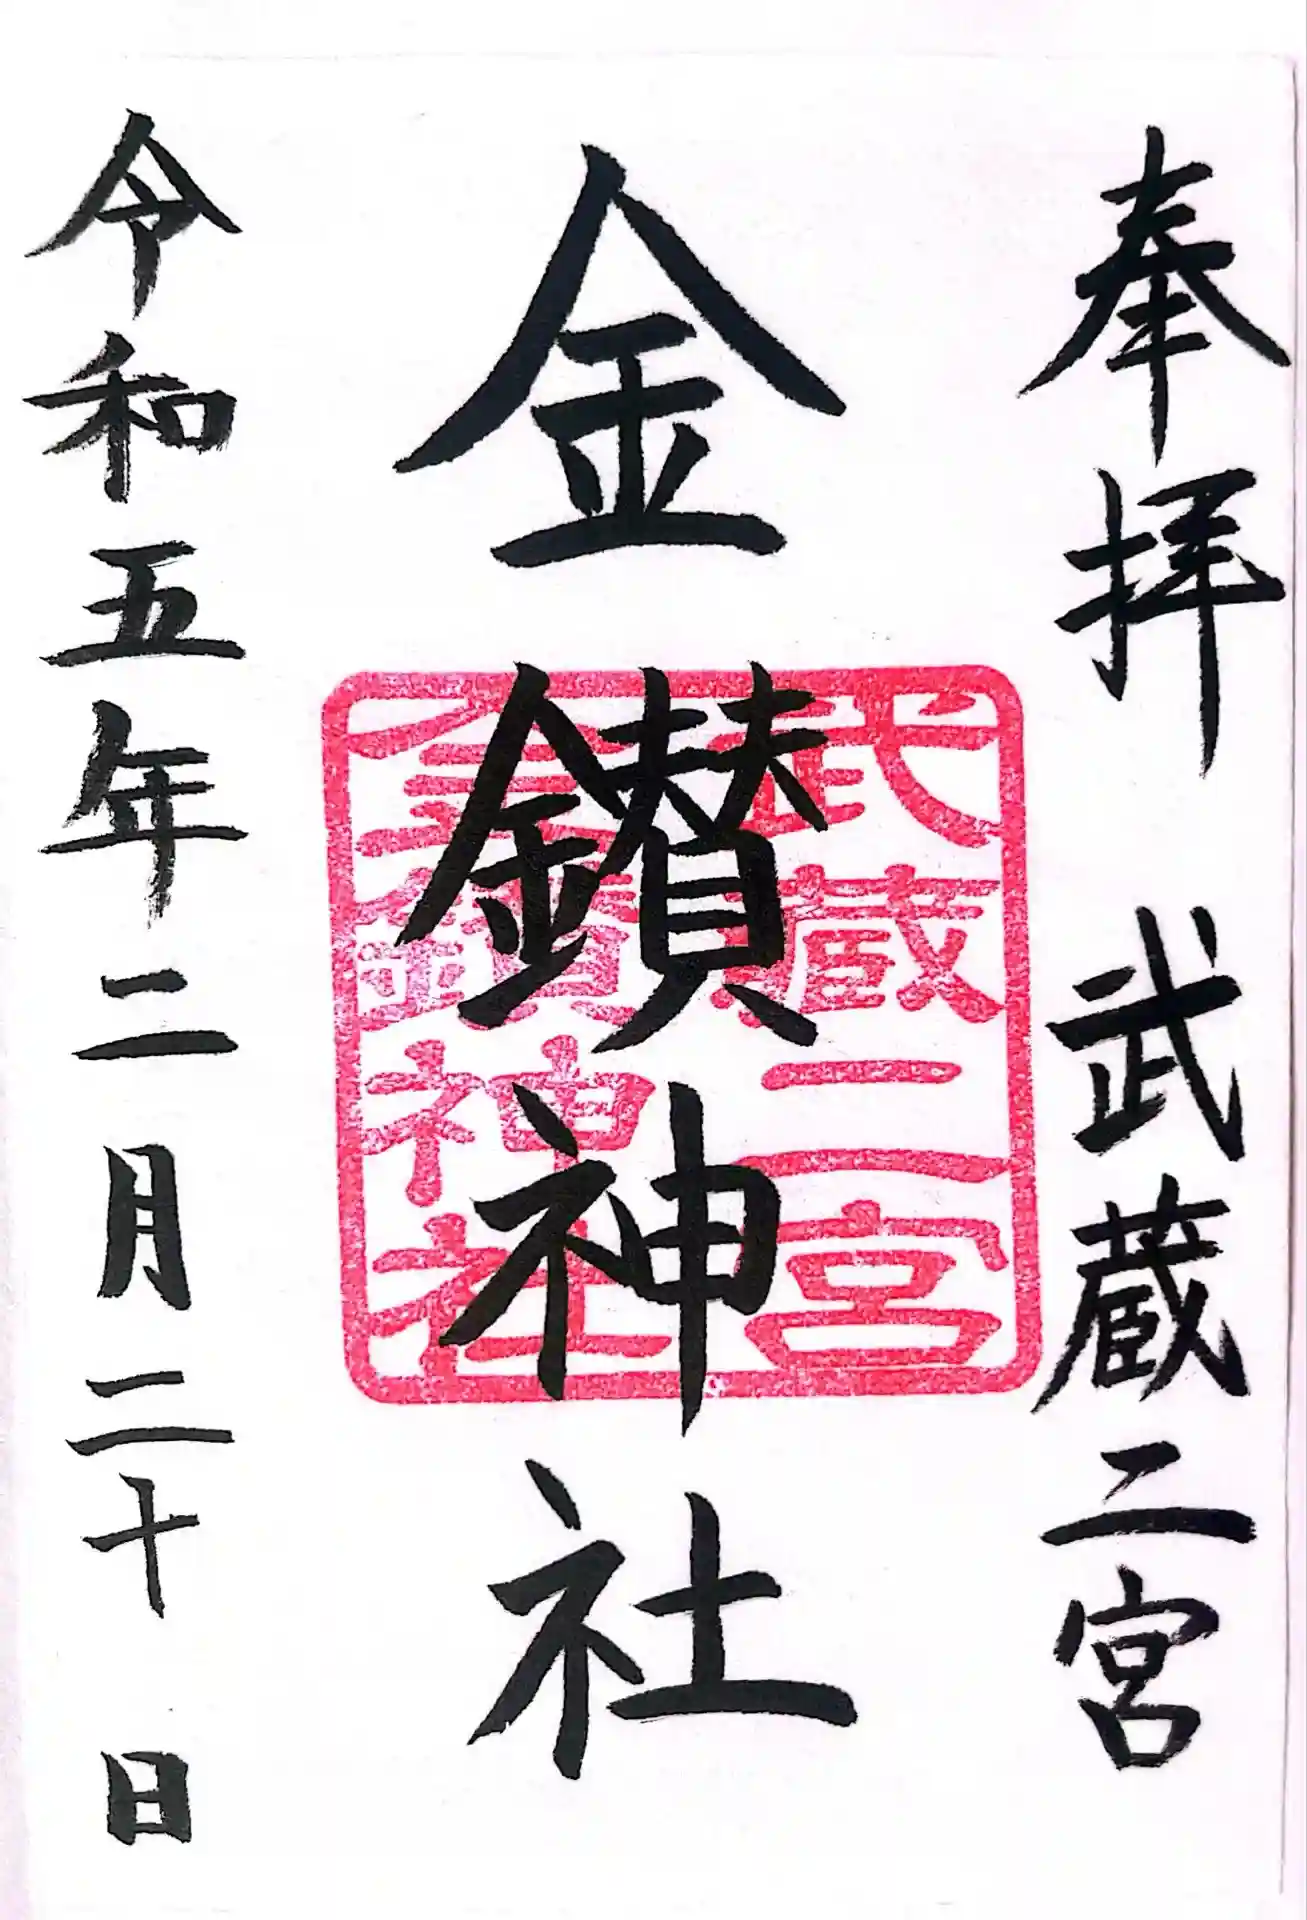 奉拝 武蔵二宮
金鑚神社
武蔵二宮
金鑚神社
令和五年二月二十日